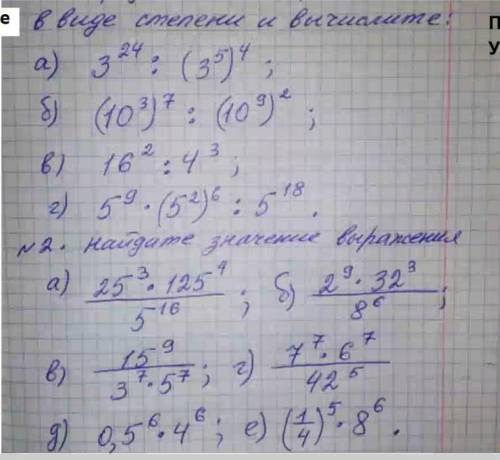 е в виде степени и вычислите: П
У
а) 3²⁴ : (3⁵)⁴ ;
б) (10³)⁷ : (10⁹)² ;
в) 16² : 4³ ;
г) 5⁹ · (5²)⁶ : 5¹⁸ .
№2. Найдите значение выражения
а) 25³ · 125⁴ / 5¹⁶ ; б) 2⁹ · 32³ / 8⁶ ;
в) 15⁹ / 3⁷ · 5⁷ ; г) 7⁷ · 6⁷ / 42⁵
д) 0,5⁶ · 4⁶ ; е) (1/4)⁵ · 8⁶ .